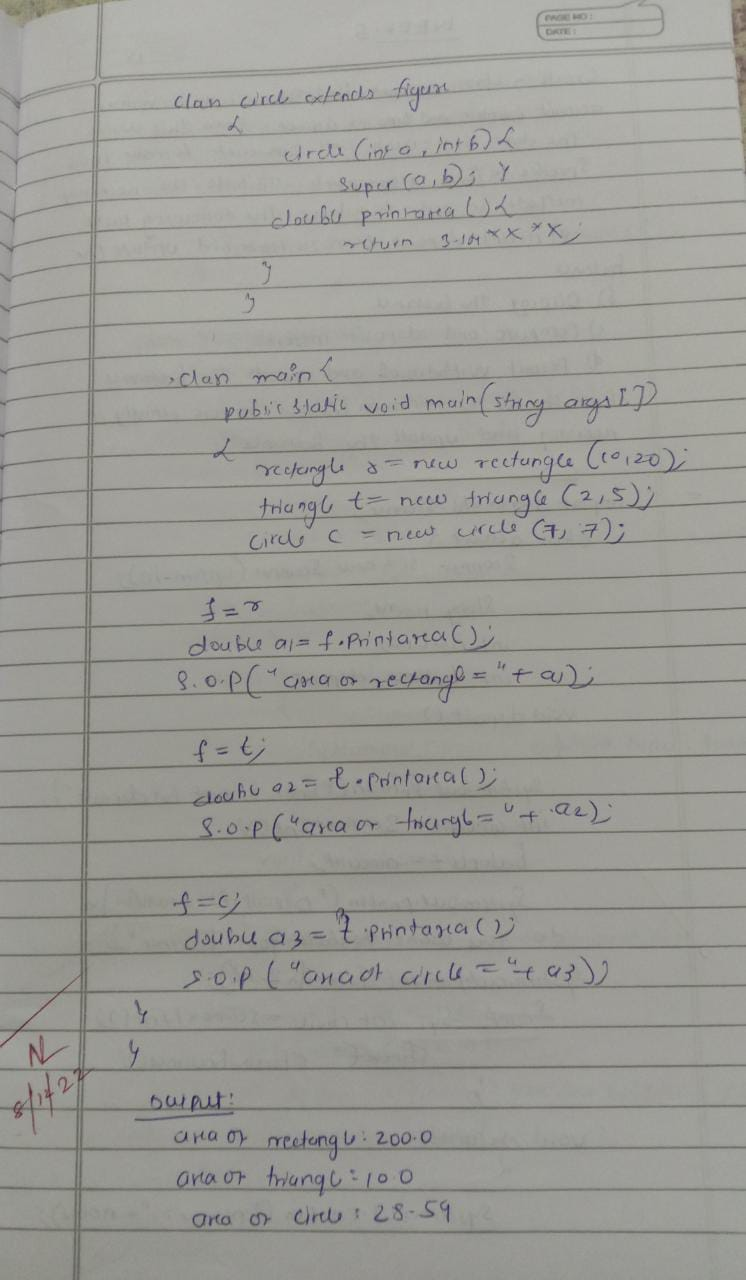 PAGE NO:
DATE:
class circle extends figure
{
circle (int a, int b) {
super (a, b); }
double printarea () {
return 3.14 * x * x;
}
}
class main {
public static void main(string args [])
{
rectangle r = new rectangle (10,20);
triangle t = new triangle (2,5);
circle c = new circle (7, 7);
f = r
double a1 = f.printarea();
S.O.P("area of rectangle = " + a1);
f = t;
double a2 = t.printarea();
S.O.P ("area of triangle = " + a2);
f = c;
double a3 = printarea();
S.O.P ("area of circle = " + a3);
}
}
Output:
area of rectangle: 200.0
area of triangle: 10.0
area of circle: 28.59